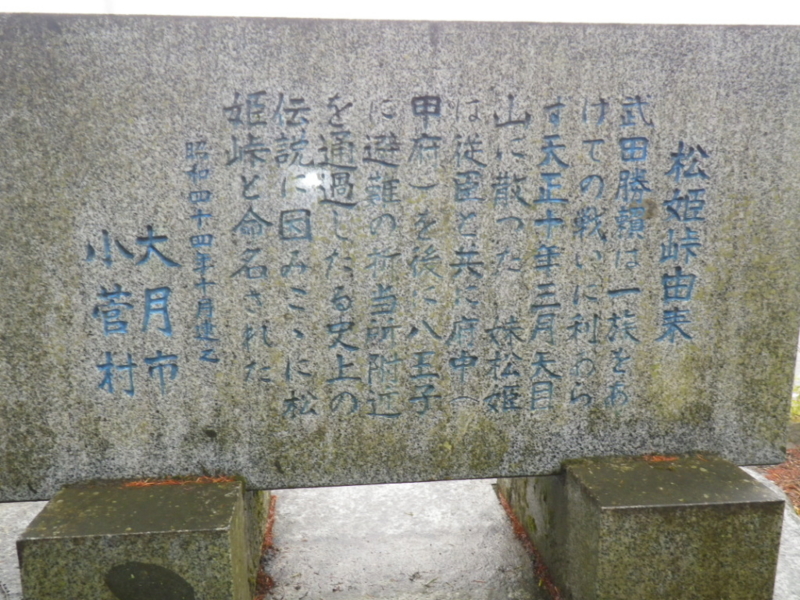 松姫峠由来
武田勝頼は一族をあ
げての戦いに利あら
ず天正十年三月天目
山に散った 妹松姫
は従臣と共に府中(
甲府)を後に八王子
に避難の折当所附近
を通過したる史上の
伝説に因みこゝに松
姫峠と命名された
昭和四十四年十月建之
大月市
小菅村